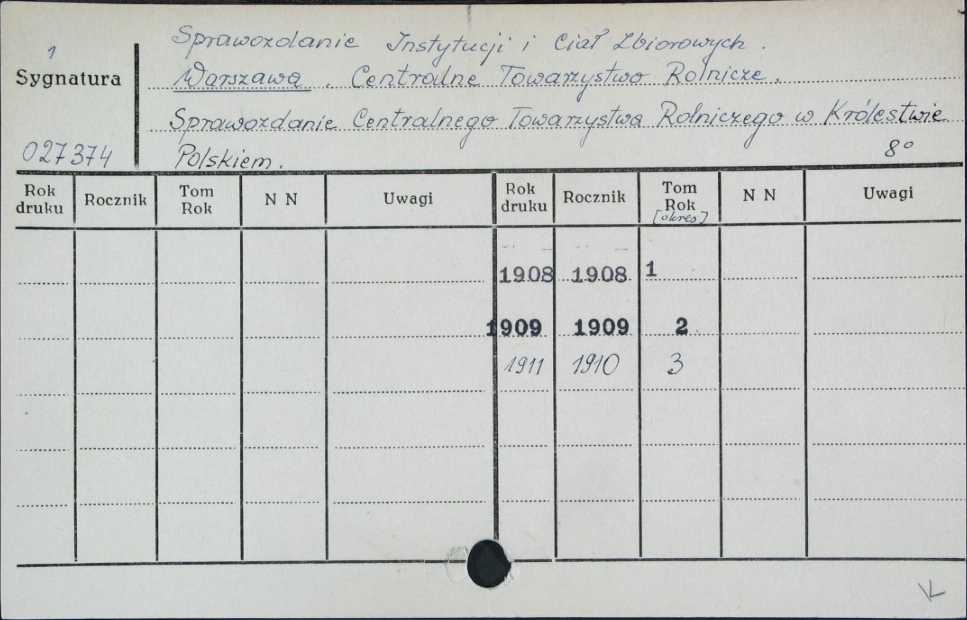 Sprawozdanie Instytucji i Ciał Zbiorowych.
1
Sygnatura
Warszawa. Centralne Towarzystwo Rolnicze.
Sprawozdanie Centralnego Towarzystwa Rolniczego w Królestwie
027374
Polskiem.
8°
Rok druku Rocznik Tom Rok N N Uwagi Rok druku Rocznik Tom Rok [okres] N N Uwagi
1908 1908 1
1909 1909 2
1911 1910 3